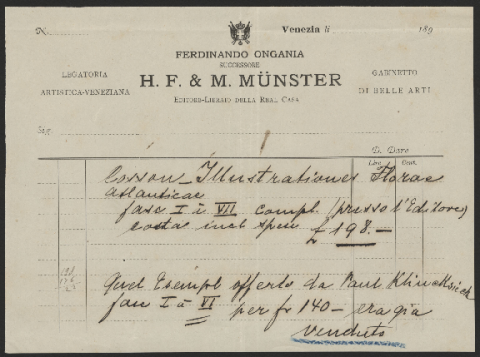 N.
Venezia li 189
FERDINANDO ONGANIA
SUCCESSORE
H. F. & M. MÜNSTER
EDITORE-LIBRAIO DELLA REAL CASA
LEGATORIA
ARTISTICA-VENEZIANA
GABINETTO
DI BELLE ARTI
Sig.
D. Dare
Lire Cent.
Cosson - Illustrationes Florae
atlanticae
fasc I à VII compl. (presso l'Editore)
costa incl spese £ 198.—
Quel Esempl offerto da Paul Klincksieck
fasc I à VI per fr 140 — era già
venduto